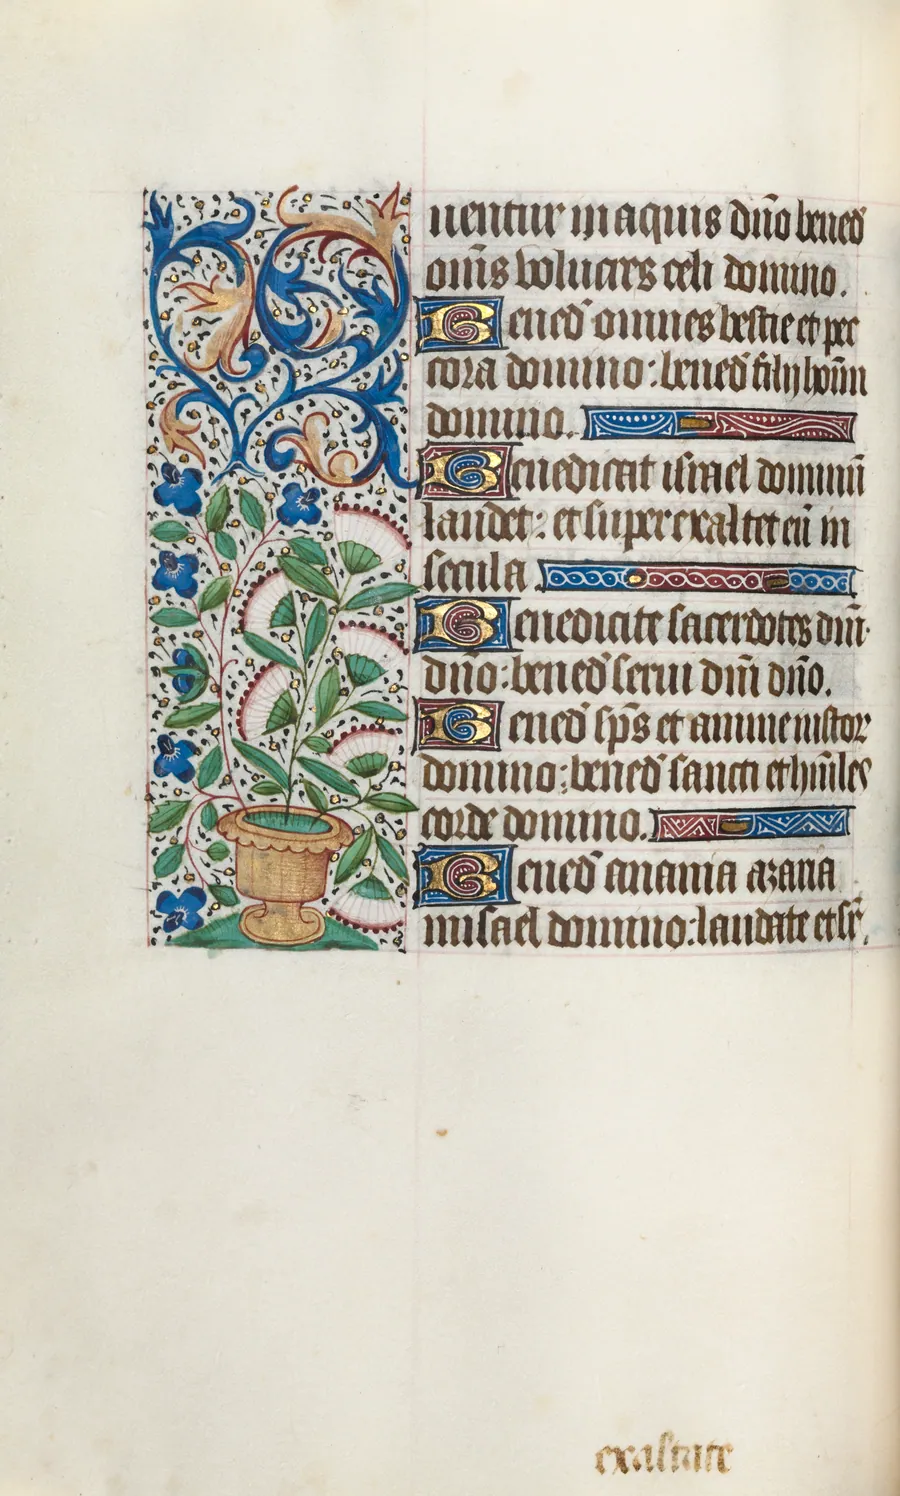 uentur in aquis dño bened̃
om̃s volucres celi domino.
Bened̃ omnes bestie et pec
cora domino: bened̃ filij hom̃
domino.
Benedicat israel dominũ
laudet: et superexaltet eũ in
secula
Benedicite sacerdotes dñi
dño: bened̃ serui dñi dño.
Bened̃ sp̃s et anime iustor
domino: bened̃ sancti et hũiles
corde domino.
Bened̃ anania azaria
misael domino: laudate et
exaltate